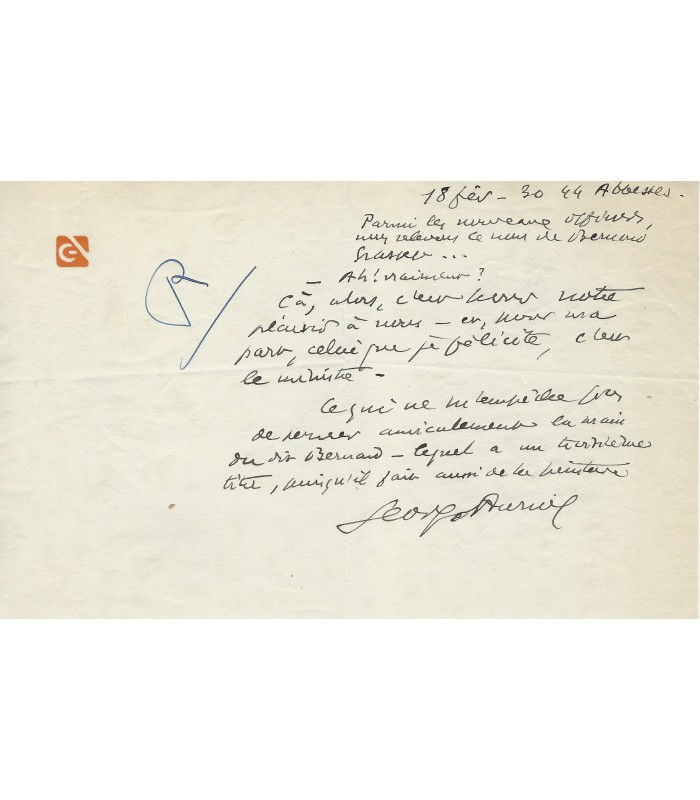 18 fév - 30 44 Abbesses.
Parmi les nouveaux officiers,
nous relevons le nom de Bernard
Grasset ...
— Ah! vraiment?
Çà, alors, c'est pour notre
plaisir à nous — et, pour ma
part, celui que je félicite, c'est
le ministre —
Ce qui ne m'empêche pas
de serrer amicalement la main
du dit Bernard — lequel a un troisième
titre, puisqu'il fait aussi de la peinture
Georges Auriol